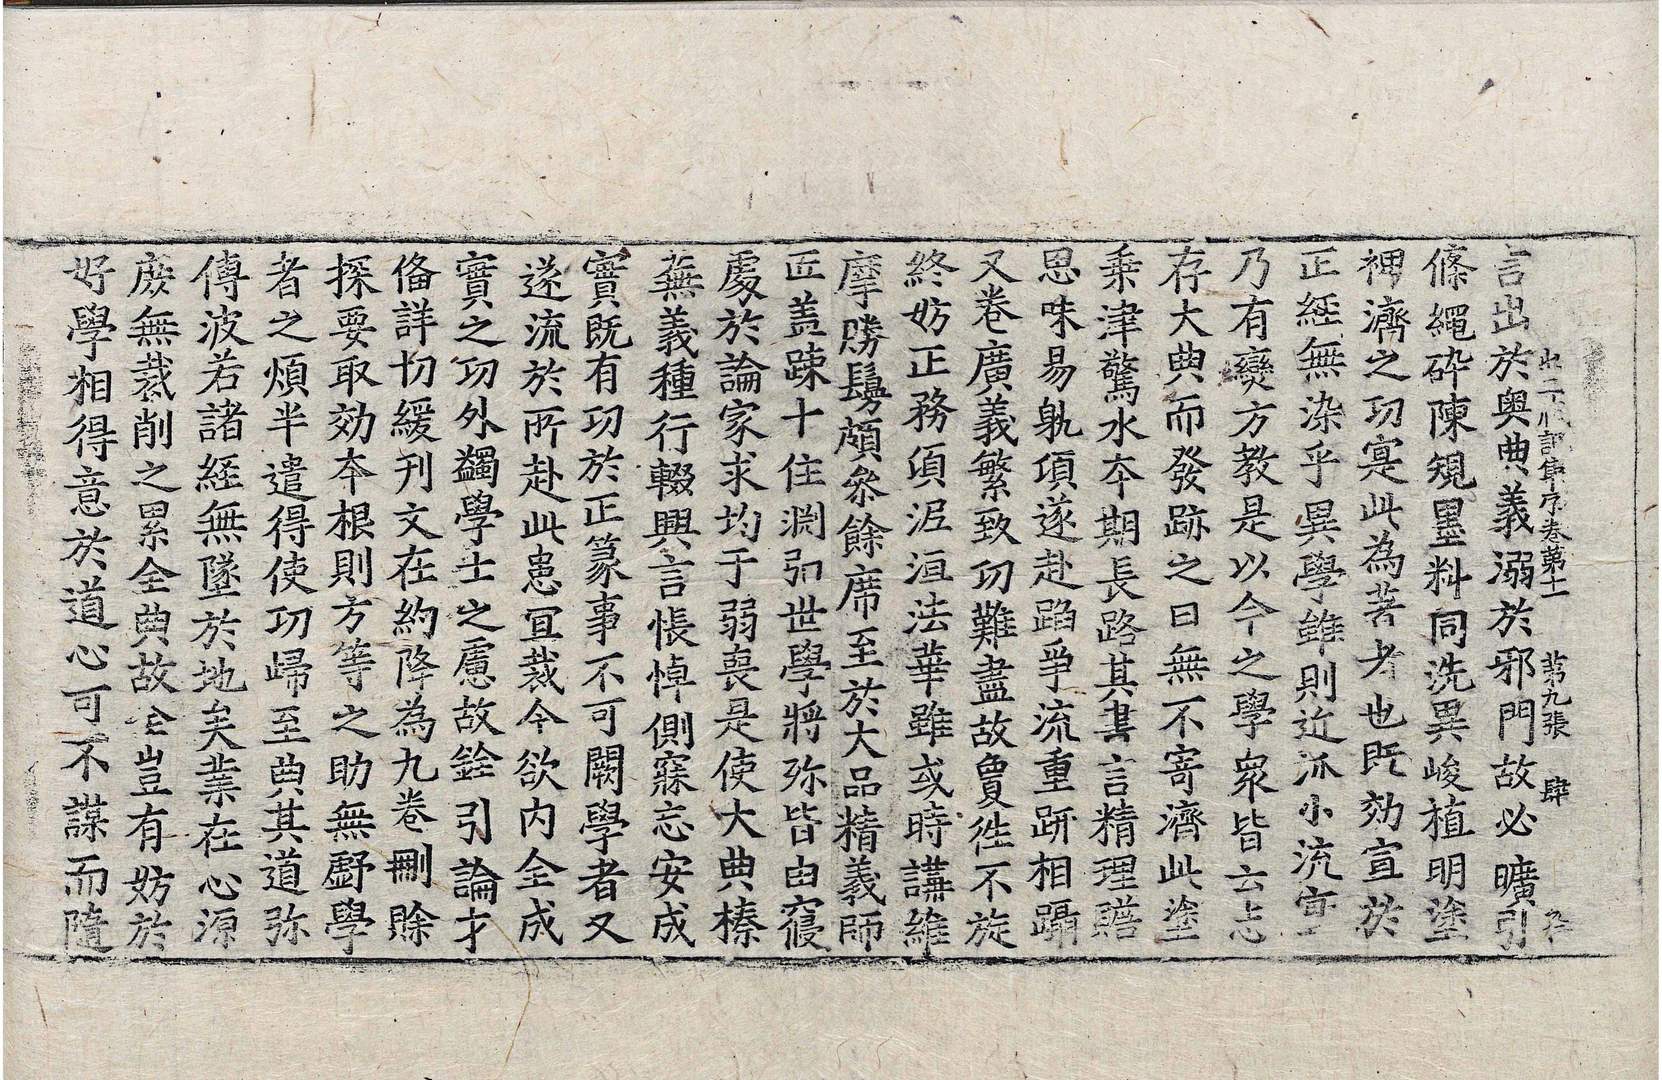 出三藏記集序卷第十一　第九張　肆
言出於奧典義溺於邪門故必曠引
條繩碎陳規墨料同洗異峻植明塗
裨濟之功寔此為著者也既効宣於
正經無染乎異學雖則近派小流寔
乃有變方教是以今之學衆皆云志
存大典而發跡之日無不寄濟此塗
乗津驚水夲期長路其書言精理贍
思味易躭頃遂赴蹈爭流重趼相躡
又卷廣義繁致功難盡故敻徃不旋
終妨正務頃泥洹法華雖或時講維
摩勝鬘頗叅餘席至於大品精義師
匠蓋踈十住淵弘世學將殄皆由寢
處於論家求均于弱喪是使大典榛
蕪義種行輟興言悵悼側寐忘安成
實旣有功於正篆事不可闕學者又
遂流於所赴此患宜裁今欲内全成
實之功外蠲學士之慮故銓引論才
俻詳切緩刊文在約降為九卷刪賒
探要取効夲根則方等之助無虧學
者之煩半遣得使功歸至典其道弥
傳波若諸経無墜於地矣業在心源
庻無裁削之累全典故仝豈有妨於
好學相得意於道心可不謀而隨